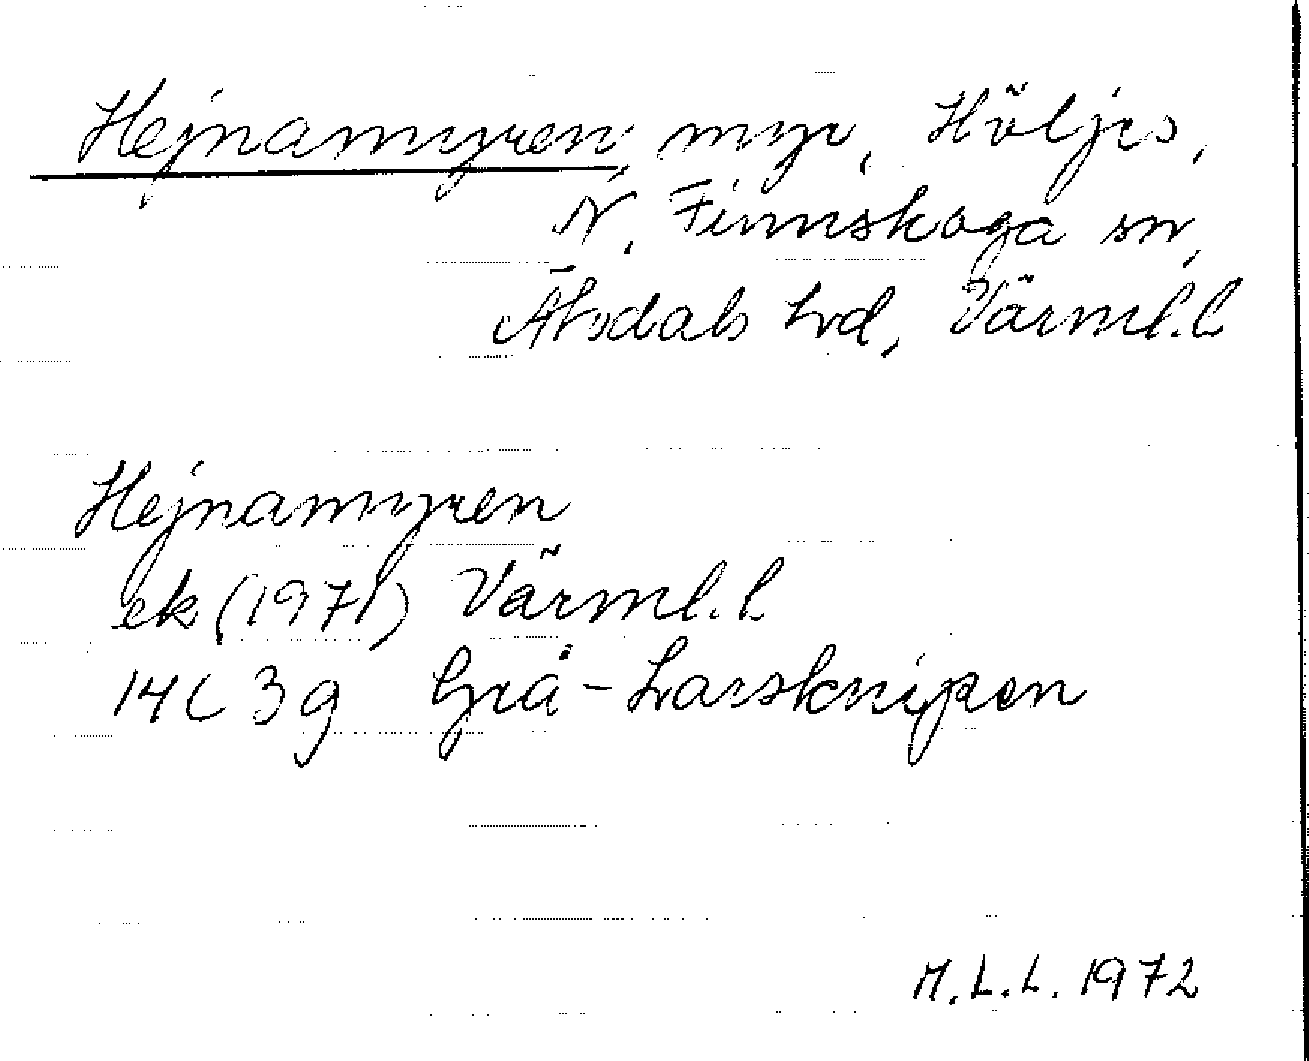 Hejnamyren, myr, Höljes,
N. Finnskoga sn,
Älvdals hd, Värml. l
Hejnamyren
ek (1971) Värml. l.
14C 3g Grå-Larsknipen
M.L.L. 1972